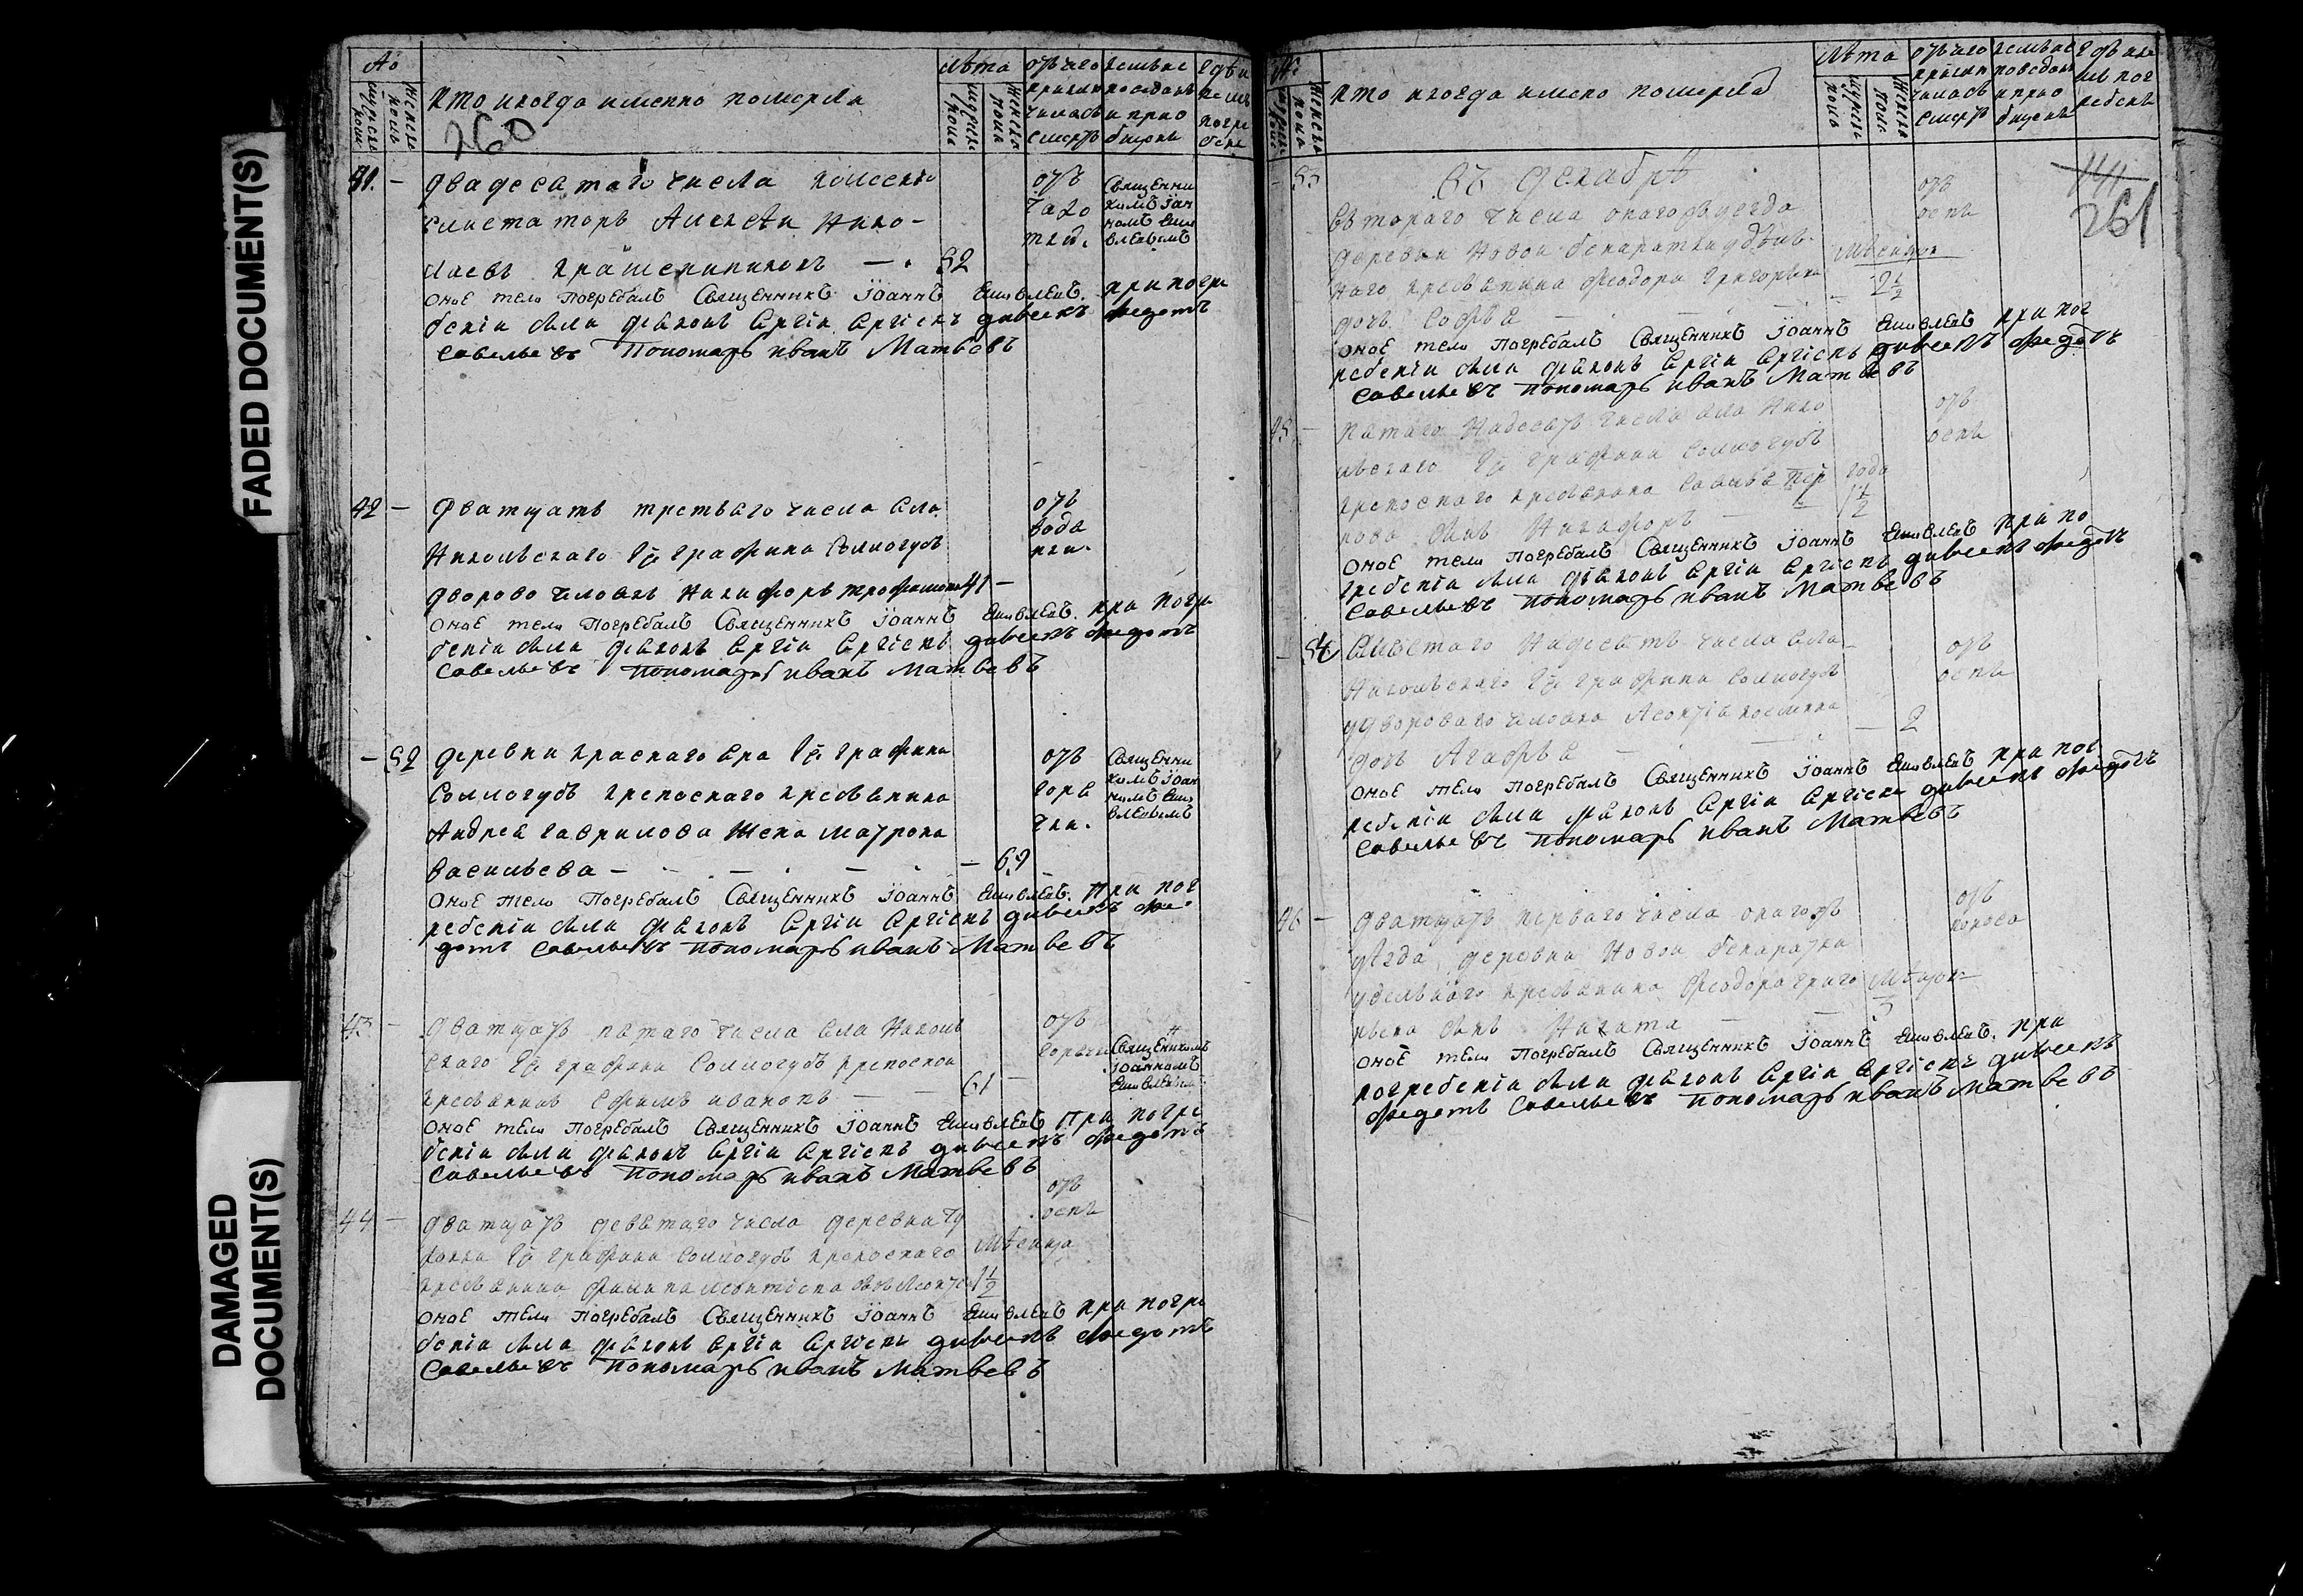 FADED DOCUMENT(S)
DAMAGED DOCUMENT(S)
№
мужеска пола
женска пола
кто и когда именно померли
260
Лѣта
мужска пола
женска пола
отъ чего приключилась смерть
кемъ исповеданъ и приобщенъ
гдѣ и кемъ погребенъ
41. —
двадесатаго числа
Алекѣи Нико-
лаевъ — 52
отъ
священникомъ Іоанномъ
Оное тело погребалъ Священникъ Іоаннъ при погре
бении были діаконъ Сргіи Сргіевъ дьячекъ Федотъ
Савельевъ пономарь Иванъ Матвѣевъ
42 —
Дватцать третьяго числа села
Никольскаго Гжи графини Соллогубъ
дворово человекъ Никифоръ трофимовъ 41 —
отъ водянки.
Оное тело погребалъ Священникъ Іоаннъ при погре
бении были діаконъ Сргіи Сргіевъ дьячекъ Федотъ
Савельевъ пономарь Иванъ Матвѣевъ
— 52
деревни краснаго Гжи графини
Соллогубъ крепоснаго кресьянина
Андрея гаврилова жена матрона
васильева — — 69
отъ горячки.
священникомъ Іоанномъ
Оное тело погребалъ Священникъ Іоаннъ при пог
ребении были діаконъ Сргіи Сргіевъ дьячекъ Фе-
дотъ Савельевъ пономарь Иванъ Матвѣевъ
43 —
Дватцать пятаго числа села Николь
скаго Гжи графини Соллогубъ крепосной
кресьянинъ Ефимъ ивановъ — 61 —
отъ горячки
Священникомъ Іоанномъ
Оное тело погребалъ Священникъ Іоаннъ При погре
бении были діаконъ Сргіи Сргіевъ дьячекъ Федотъ
Савельевъ пономарь Иванъ Матвѣевъ
44 —
Дватцать девятаго числа деревни
Гжи графини Соллогубъ крепоснаго
кресьянина филипа сынъ
мѣсяца 1½
отъ оспы
Оное тело погребалъ Священникъ Іоаннъ при погре
бении были діаконъ Сргіи Сргіевъ дьячекъ Федотъ
Савельевъ пономарь Иванъ Матвѣевъ
№
женска пола
кто и когда имено померла
Лѣта
мужеска пола
женска пола
отъ чего приключилась смерть
кемъ исповеданъ и приобщенъ
гдѣ и кемъ погребенъ
141
261
— 53
въ декабрѣ
втораго числа онаго уезда
деревни Новой удѣль-
наго кресьянина Феодора Григорьева
дочь Софья —
мѣсяцов 2½
отъ оспы
Оное тело погребалъ Священникъ Іоаннъ при пог
ребении были діаконъ Сргіи Сргіевъ дьячекъ Федотъ
Савельевъ пономарь Иванъ Матвѣевъ
45 —
Пятаго Надесять числа села Нико
льскаго Гжи графини Соллогубъ
крепоснаго кресьянина
сынъ Никифоръ —
года 1½
отъ оспы
Оное тело погребалъ Священникъ Іоаннъ при по
гребении были діаконъ Сргіи Сргіевъ дьячекъ Федотъ
Савельевъ пономарь Иванъ Матвѣевъ
— 54
Шестаго Надесять числа села
Никольскаго Гжи графини Соллогубъ
у двороваго человека
дочь Агафья — 2
отъ оспы
Оное тело погребалъ Священникъ Іоаннъ при пог
ребении были діаконъ Сргіи Сргіевъ дьячекъ Федотъ
Савельевъ пономарь Иванъ Матвѣевъ
46 —
Дватцать перваго числа онагожъ
уѣзда деревни Новой
удельнаго кресьянина Феодора григо
рьева сынъ Никита —
мѣсяцов 3
отъ поноса
Оное тело погребалъ Священникъ Іоаннъ при
погребении были діаконъ Сргіи Сргіевъ дьячекъ
Федотъ Савельевъ пономарь Иванъ Матвѣевъ